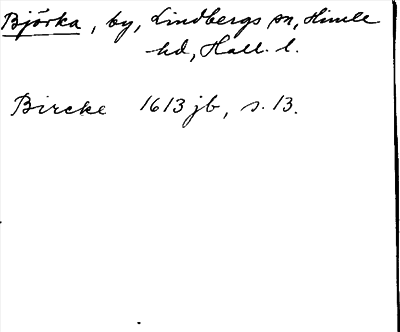 Björka, by, Lindbergs sn, Himle
hd, Hall. l.
Bircke 1613 jb, s. 13.